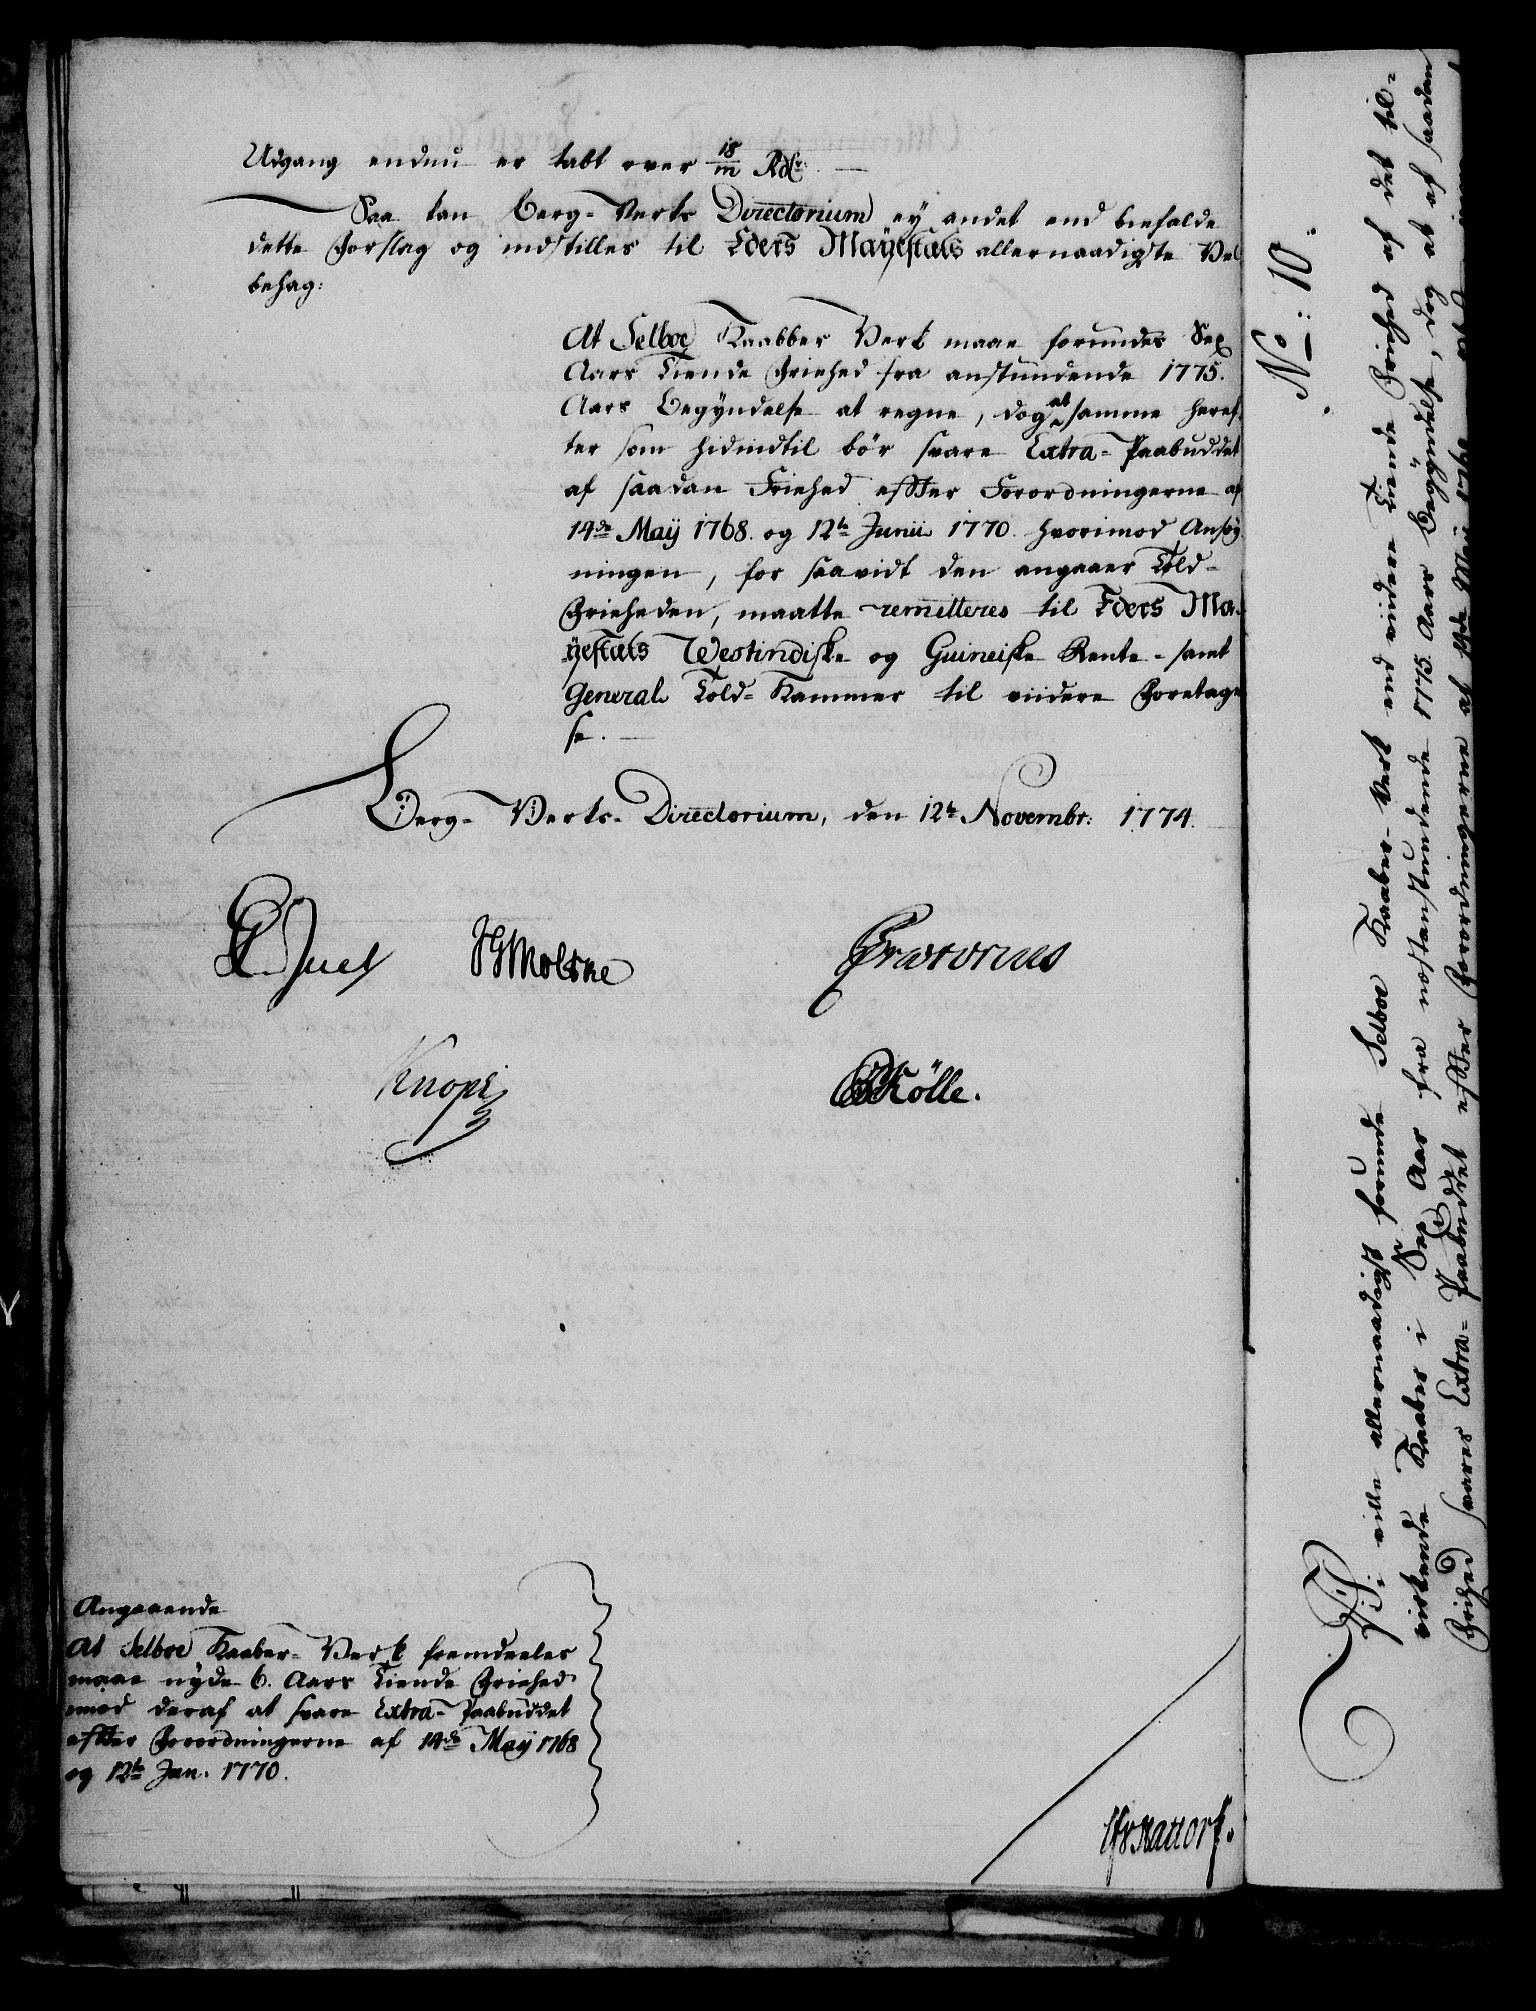 Udgang endnu er tabt over 18/m Rdlr. —
Saa kan Berg-Verks Directorium ey andet end biefalde
dette Forslag og indstilles til Eders Mayestæts allernaadigste Vel
behag:
At Selboe Kaabber Verk maae forundes Sex
Aars Tiende Friehed fra anstundende 1775.
Aars Begyndelse at regne, dog at samme heref-
ter som hidindtil bör svare Extra-Paabuddet
af saadan Friehed efter Forordningerne af
14de Maij 1768. og 12te Junii 1770. hvorimod Ansøg
ningen, for saavidt den angaaer Told-
Frieheden, maatte remitteres til Eders Ma-
yestæts Westindiske og Guineiske Rente- samt
General Told-Kammer til viidere Foretagel
se. —
Berg-Verks-Directorium, den 12te Novembr: 1774.
Juel JGMoltke Prætorius
Knoph Kölle.
Angaaende
At Selboe Kaaber-Verk fremdeeles
maae nyde 6. Aars Tiende Friehed
mod deraf at svare Extra-Paabuddet
efter Forordningerne af 14de Maij 1768
og 12te Jun. 1770.
Hattorf.
No: 10.
Vi ville allernaadigst forunde Selboe Kaaber-Verk end videre Tiende Friehed af det til-
virkende Kaaber i Sex Aar fra næstanstundende 1775. Aars Begÿndelse, dog at af saadan
Friehed svares Extra-Paabuddet efter Forordningerne af 14de Maij 1768